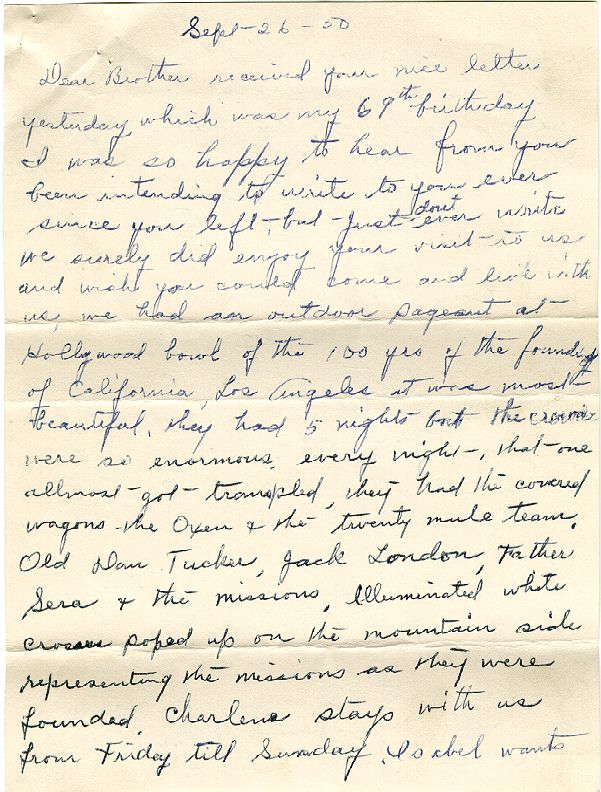 Sept - 26 - 50
Dear Brother received your nice letter
yesterday, which was my 69th birthday
I was so happy to hear from you
been intending to write to you ever
since you left, but - just dont ever write
we surely did enjoy your visit - to us
and wish you could come and live with
us, we had an outdoor pageant at
Hollywood bowl of the 100 yrs of the founding
of California, Los Angeles it was most
beautiful, they had 5 nights but the crowds
were so enormous, every night -, that - one
allmost - got - trampled, they had the covered
wagons - the Oxen & the twenty mule team,
Old Dan Tucker, Jack London, Father
Sera & the missions, Illuminated white
crosses poped up on the mountain side
representing the missions as they were
founded, Charlene stays with us
from Friday till Sunday. Isabel wants